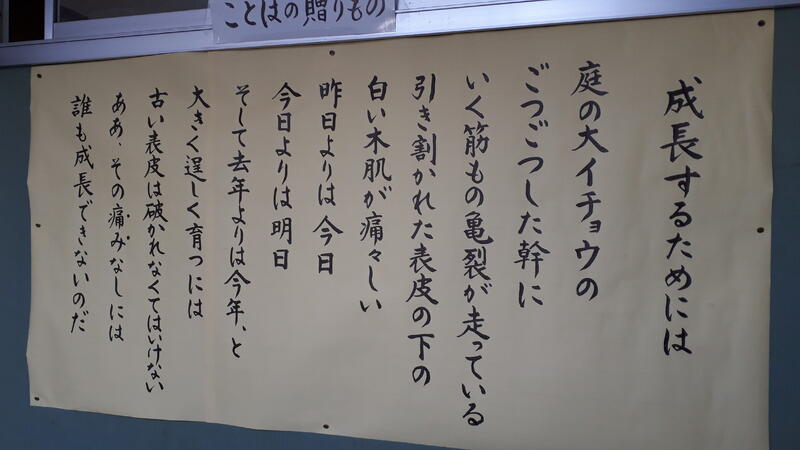 ことばの贈りもの
成長するためには
庭の大イチョウの
ごつごつした幹に
いく筋もの亀裂が走っている
引き割かれた表皮の下の
白い木肌が痛々しい
昨日よりは今日
今日よりは明日
そして去年よりは今年、と
大きく逞しく育つには
古い表皮は破かれなくてはいけない
ああ、その痛みなしには
誰も成長できないのだ